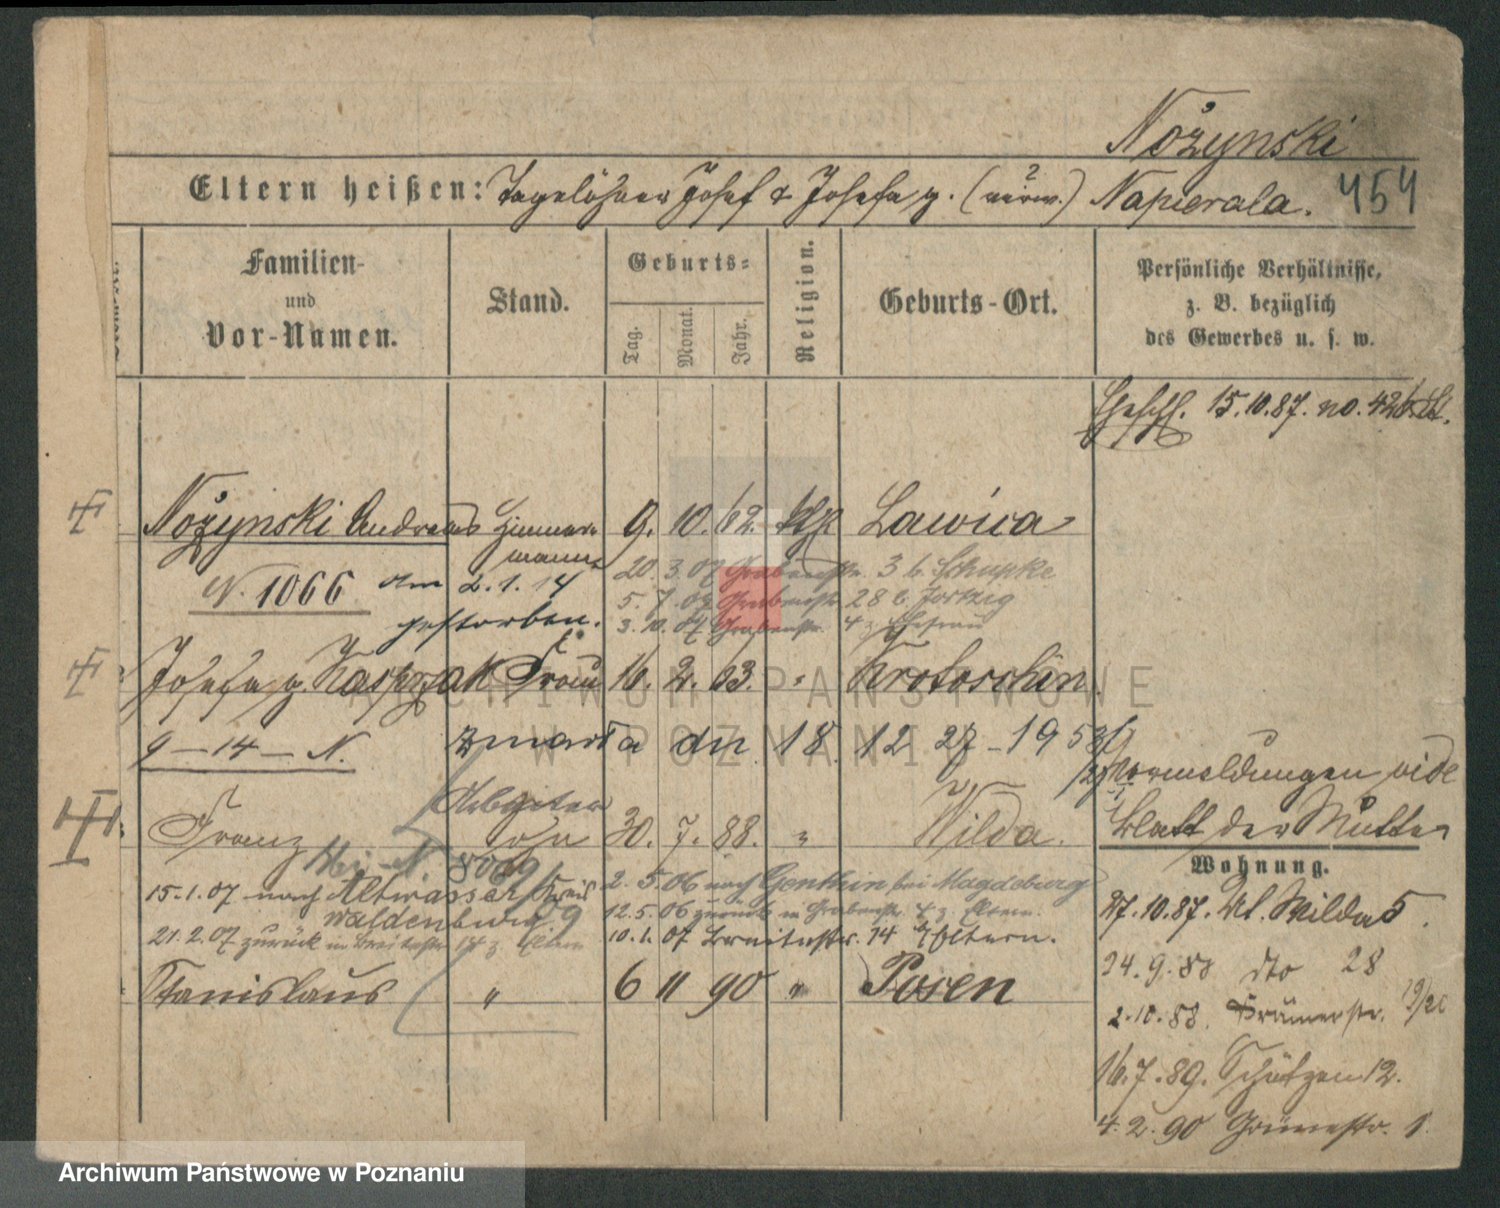 Nożynski
Eltern heißen: Tagelöhner Josef & Josefa g. (verw.) Napierala. 454
Familien-
und
Vor-Namen.
Stand.
Geburts-
Tag. Monat. Jahr.
Religion.
Geburts-Ort.
Persönliche Verhältnisse,
z. B. bezüglich
des Gewerbes u. s. w.
Ehesch. 15.10.87. no. 426
Nożynski Andreas Zimmermann 9. 10. 62. kth Lawica
N. 1066 am 2.1.14
gestorben.
20. 3. 07 Grabenstr. 3 b. Schupke
5. 7. 07 Grabenstr. 28 b.
3. 10. 07 Grabenstr. 4 z. Ehefrau
Josefa g. Kasprzak Frau 16. 2. 63. " Krotoschin.
9-14-N. zmarła dn 18 12 27-1953
Vormeldungen vide
Blatt der Mutter
Franz Arbeiter Sohn 30. 7. 88. " Wilda.
15.1.07 nach Altwasser Kreis
Waldenburg
21.2.07 zurück in Breitestr. 14 z. Eltern
2. 5. 06 nach Genthin bei Magdeburg
12.5.06 zurück in Grabenstr. 4 z. Eltern.
10.1.07 Breitestr. 14 z. Eltern.
Stanislaus " 6 11 90 " Posen
Wohnung.
27.10.87. Wilda 5.
24.9.88 dto 28
2.10.88.
16.7.89. Schützen 12.
4.2.90 Grünestr. 1.
ARCHIWUM PAŃSTWOWE
W POZNANIU
Archiwum Państwowe w Poznaniu